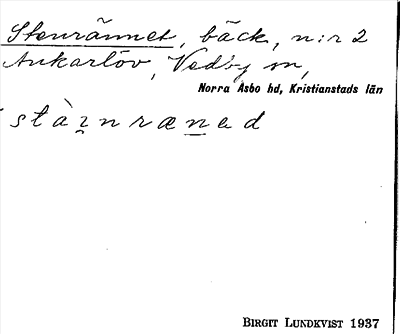 Stenrännet, bäck, n:r 2
Ankarlöv, Vedby sn,
Norra Åsbo hd, Kristianstads län
stàı̰nræn̲ed
BIRGIT LUNDKVIST 1937